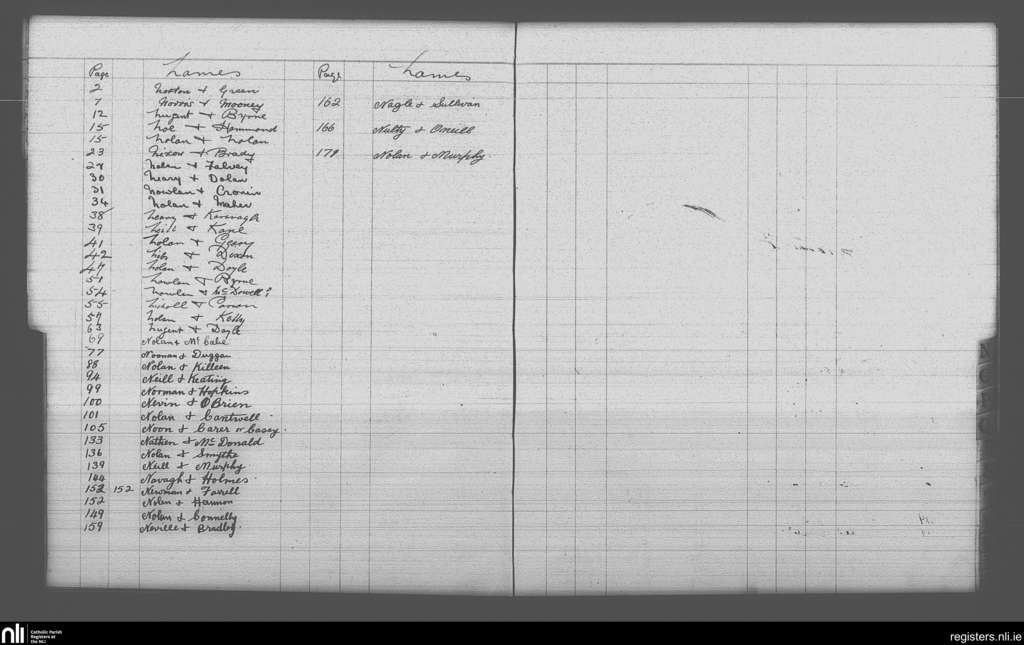 Page Names
2 Norton & Green
7 Norris & Mooney
12 Nugent & Byrne
15 Noe & Hammond
15 Nolan & Nolan
23 Nixon & Brady
27 Nolan & Falvey
30 Neary & Dolan
31 Nowlan & Cronin
34 Nolan & Maher
38 Neary & Kavanagh
39 Neill & Kane
41 Nolan & Geary
42 & Dixon
47 Nolan & Doyle
51 Nowlan & Byrne
54 Nowlan & McDowell?
55 Nicoll &
57 Nolan & Kelly
63 Nugent & Doyle
69 Nolan & McCabe
77 Noonan & Duggan
88 Nolan & Killeen
94 Neill & Keating
99 Norman & Hopkins
100 Nevin & O'Brien
101 Nolan & Cantwell
105 Noon & Carer or Casey.
133 Nathen & McDonald
136 Nolan & Smythe
139 Neill & Murphy.
144 Navagh & Holmes
152 152 Newman & Farrell
152 Nolan & Harmon
149 Nolan & Connelly
159 Neville & Bradley.
Page Names
162 Nagle & Sullivan
166 Nulty & Oneill
171 Nolan & Murphy.
nli Catholic Parish
Registers at
the NLI
registers.nli.ie